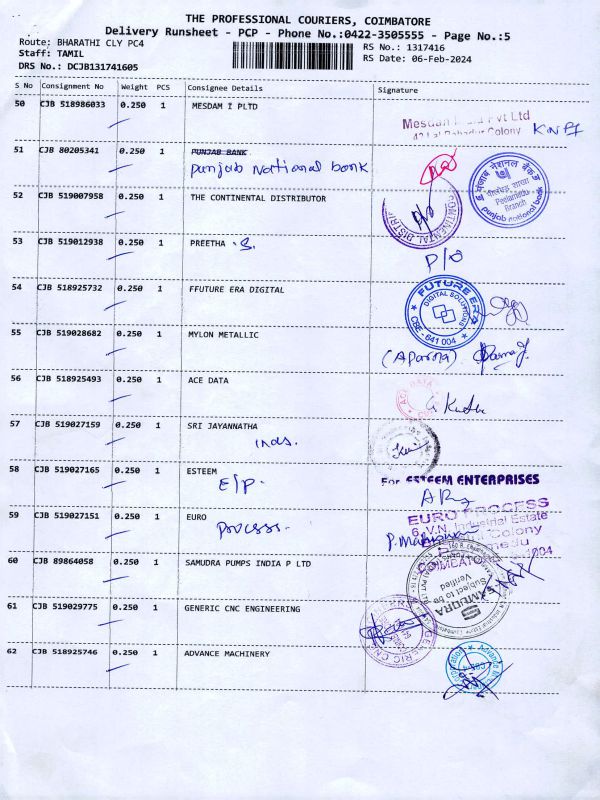 THE PROFESSIONAL COURIERS, COIMBATORE
Delivery Runsheet - PCP - Phone No.:0422-3505555 - Page No.:5
Route: BHARATHI CLY PC4
RS No.: 1317416
Staff: TAMIL
RS Date: 06-Feb-2024
DRS No.: DCJB131741605
S No Consignment No Weight PCS Consignee Details Signature
50 CJB 518986033 0.250 1 MESDAM I PLTD
Mesdam Pvt Ltd
Colony
51 CJB 80205341 0.250 1 PUNJAB BANK
punjab National bank
पंजाब नेशनल बैंक
Peelamedu
Branch
punjab national bank
52 CJB 519007958 0.250 1 THE CONTINENTAL DISTRIBUTOR
CONTINENTAL DISTRI
53 CJB 519012938 0.250 1 PREETHA .S.
P/O
54 CJB 518925732 0.250 1 FFUTURE ERA DIGITAL
FUTURE ERA
DIGITAL SOLUTIONS
CBE - 641 004
55 CJB 519028682 0.250 1 MYLON METALLIC
(Aparna)
56 CJB 518925493 0.250 1 ACE DATA
57 CJB 519027159 0.250 1 SRI JAYANNATHA
Inds.
58 CJB 519027165 0.250 1 ESTEEM
E/P.
For ESTEEM ENTERPRISES
59 CJB 519027151 0.250 1 EURO
process.
EURO PROCESS
6, V.N. Industrial Estate
Colony
COIMBATORE
60 CJB 89864058 0.250 1 SAMUDRA PUMPS INDIA P LTD
Subject to be
Verified
SAMUDRA
61 CJB 519029775 0.250 1 GENERIC CNC ENGINEERING
GENERIC CNC
62 CJB 518925746 0.250 1 ADVANCE MACHINERY
Advance